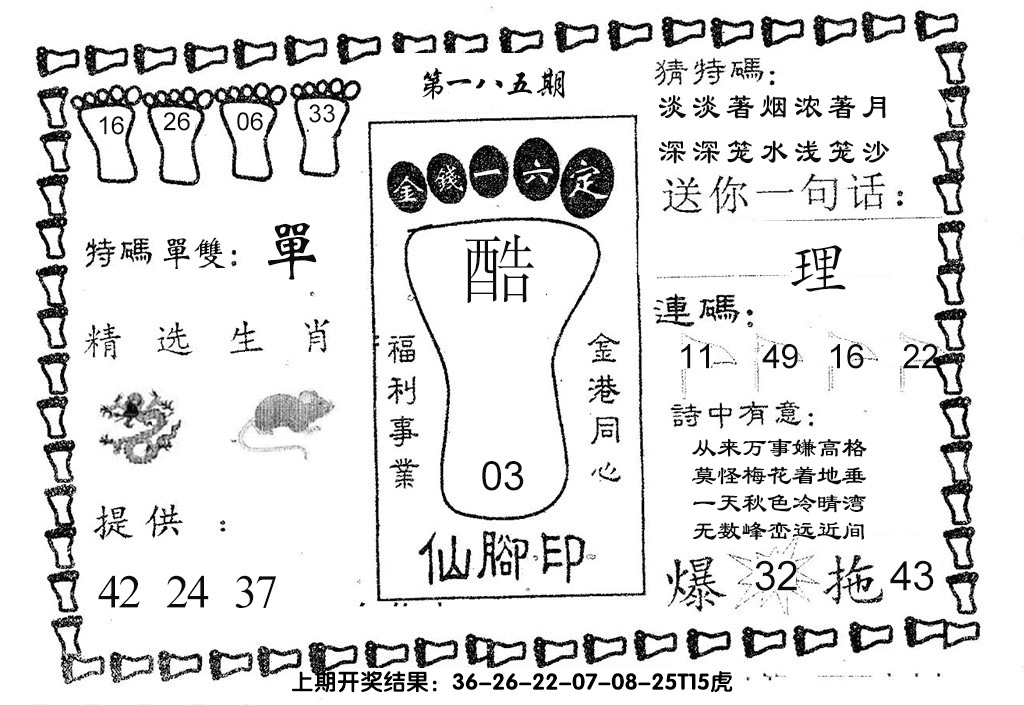 16 26 06 33
特碼單雙：單
精选生肖
提供：
42 24 37
第一八五期
金錢一六定
酷
福利事業
金港同心
03
仙腳印
猜特碼：
淡淡著烟浓著月
深深笼水浅笼沙
送你一句话：
理
連碼：
11 49 16 22
詩中有意：
从来万事嫌高格
莫怪梅花着地垂
一天秋色冷晴湾
无数峰峦远近间
爆 32 拖 43
上期开奖结果：36-26-22-07-08-25T15虎